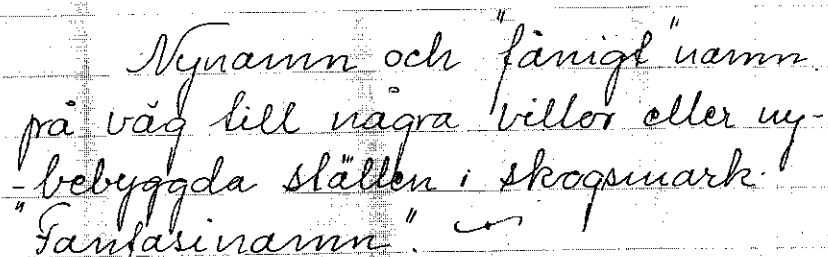 Nynamn och "fånigt" namn
på väg till några villor eller ny-
-bebyggda ställen i skogsmark.
"Fantasinamn".